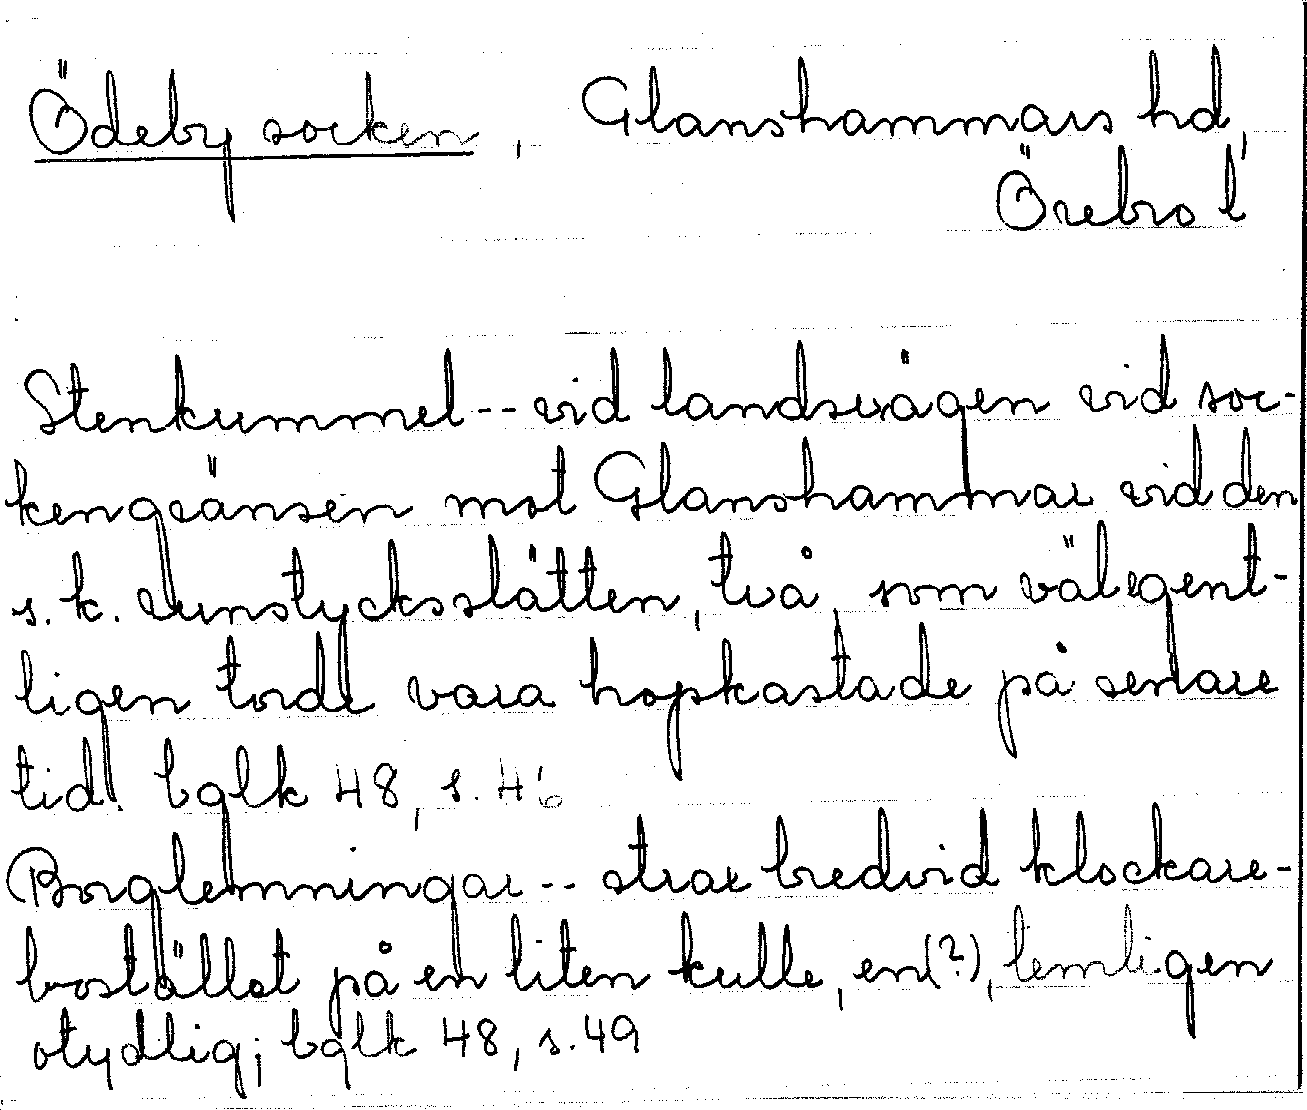 Ödeby socken, Glanshammars hd,
Örebro l
Stenkummel -- vid landsvägen vid soc-
kengränsen mot Glanshammar vid den
s.k. runstycksslätten, två, som väl egent-
ligen torde vara hopkastade på senare
tid. bglk 48, s. 46
Borglemningar -- strax bredvid klockare-
bostället på en liten kulle, en(?), lemligen
otydlig; bglk 48, s. 49